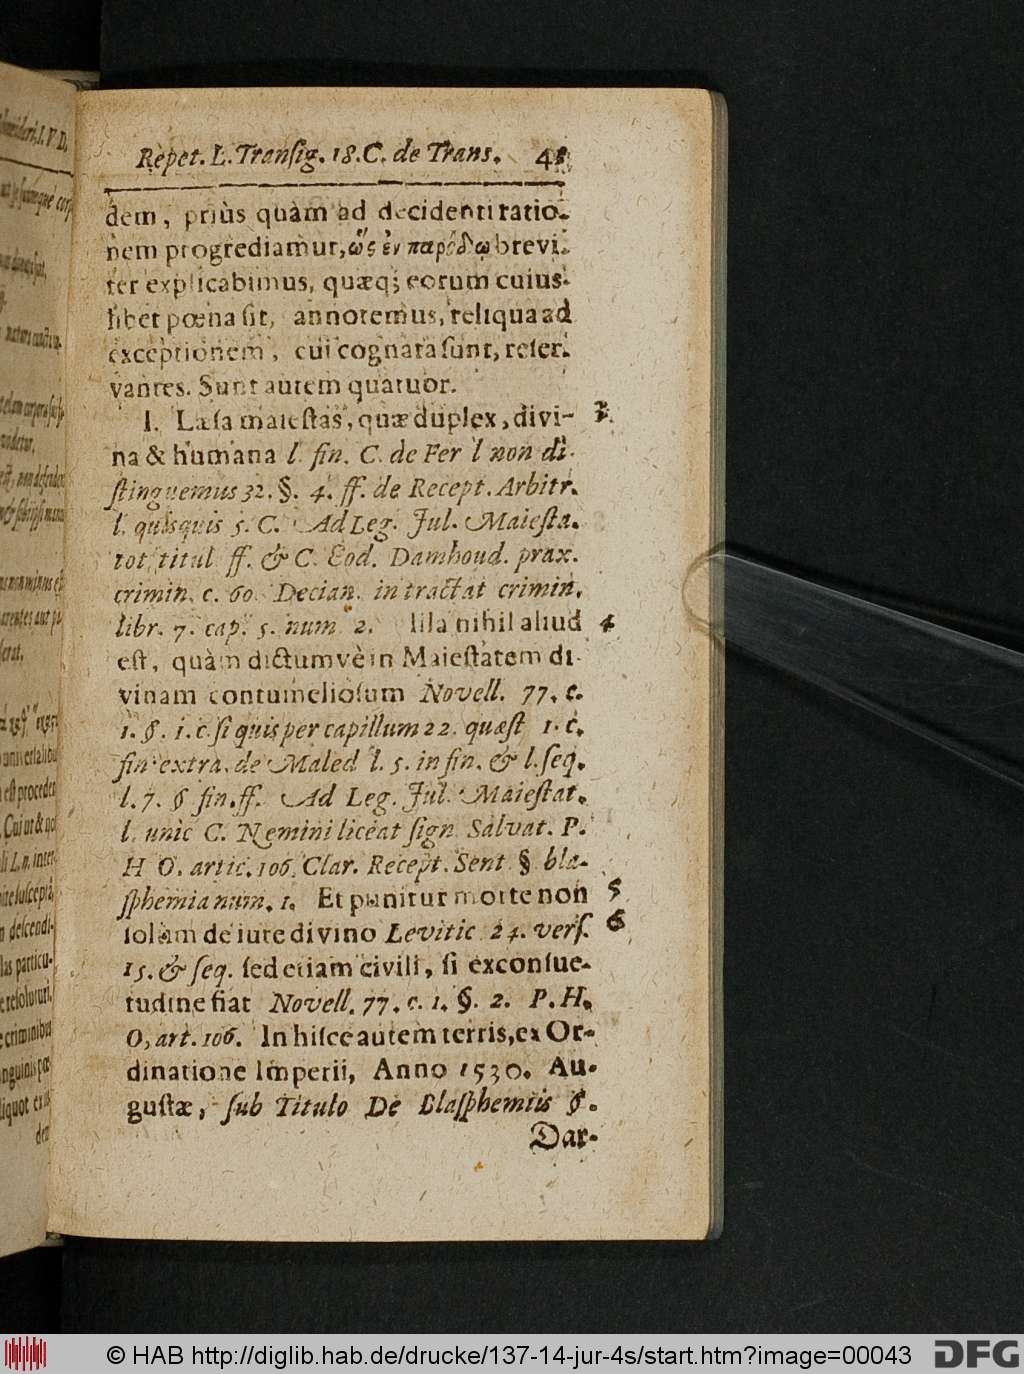 Repet. L. Transig. 18. C. de Trans. 41
dem, priùs quàm ad decidenti ratio-
nem progrediamur, ὥς ἐν παρόδῳ brevi-
ter explicabimus, quæq; eorum cuius-
libet pœna sit, annotemus, reliqua ad
exceptionem, cui cognata sunt, reser-
vantes. Sunt autem quatuor.
I. Læsa maiestas, quæ duplex, divi- 3.
na & humana l. fin. C. de Fer l non di-
stinguemus 32. §. 4. ff. de Recept. Arbitr.
l. quisquis 5. C. Ad Leg. Jul. Maiesta.
tot titul ff. & C. Eod. Damhoud. prax.
crimin. c. 60. Decian. in tractat crimin.
libr. 7. cap. 5. num 2. Illa nihil aliud 4
est, quàm dictum vè in Maiestatem di-
vinam contumeliosum Novell. 77. c.
1. §. 1. c. si quis per capillum 22. quæst 1. c.
fin extra. de Maled l. 5. in fin. & l. seq.
l. 7. § fin. ff. Ad Leg. Jul. Maiestat.
l. unic C. Nemini liceat sign Salvat. P.
H O. artic. 106 Clar. Recept. Sent § bla-
sphemia num. 1. Et punitur morte non 5
solùm de iure divino Levitic 24. vers. 6
15. & seq. sed etiam civili, si ex consue-
tudine fiat Novell. 77. c. 1. §. 2. P. H.
O, art. 106. In hisce autem terris, ex Or-
dinatione Imperii, Anno 1530. Au-
gustæ, sub Titulo De Blasphemiis §.
Dar-
© HAB http://diglib.hab.de/drucke/137-14-jur-4s/start.htm?image=00043
DFG